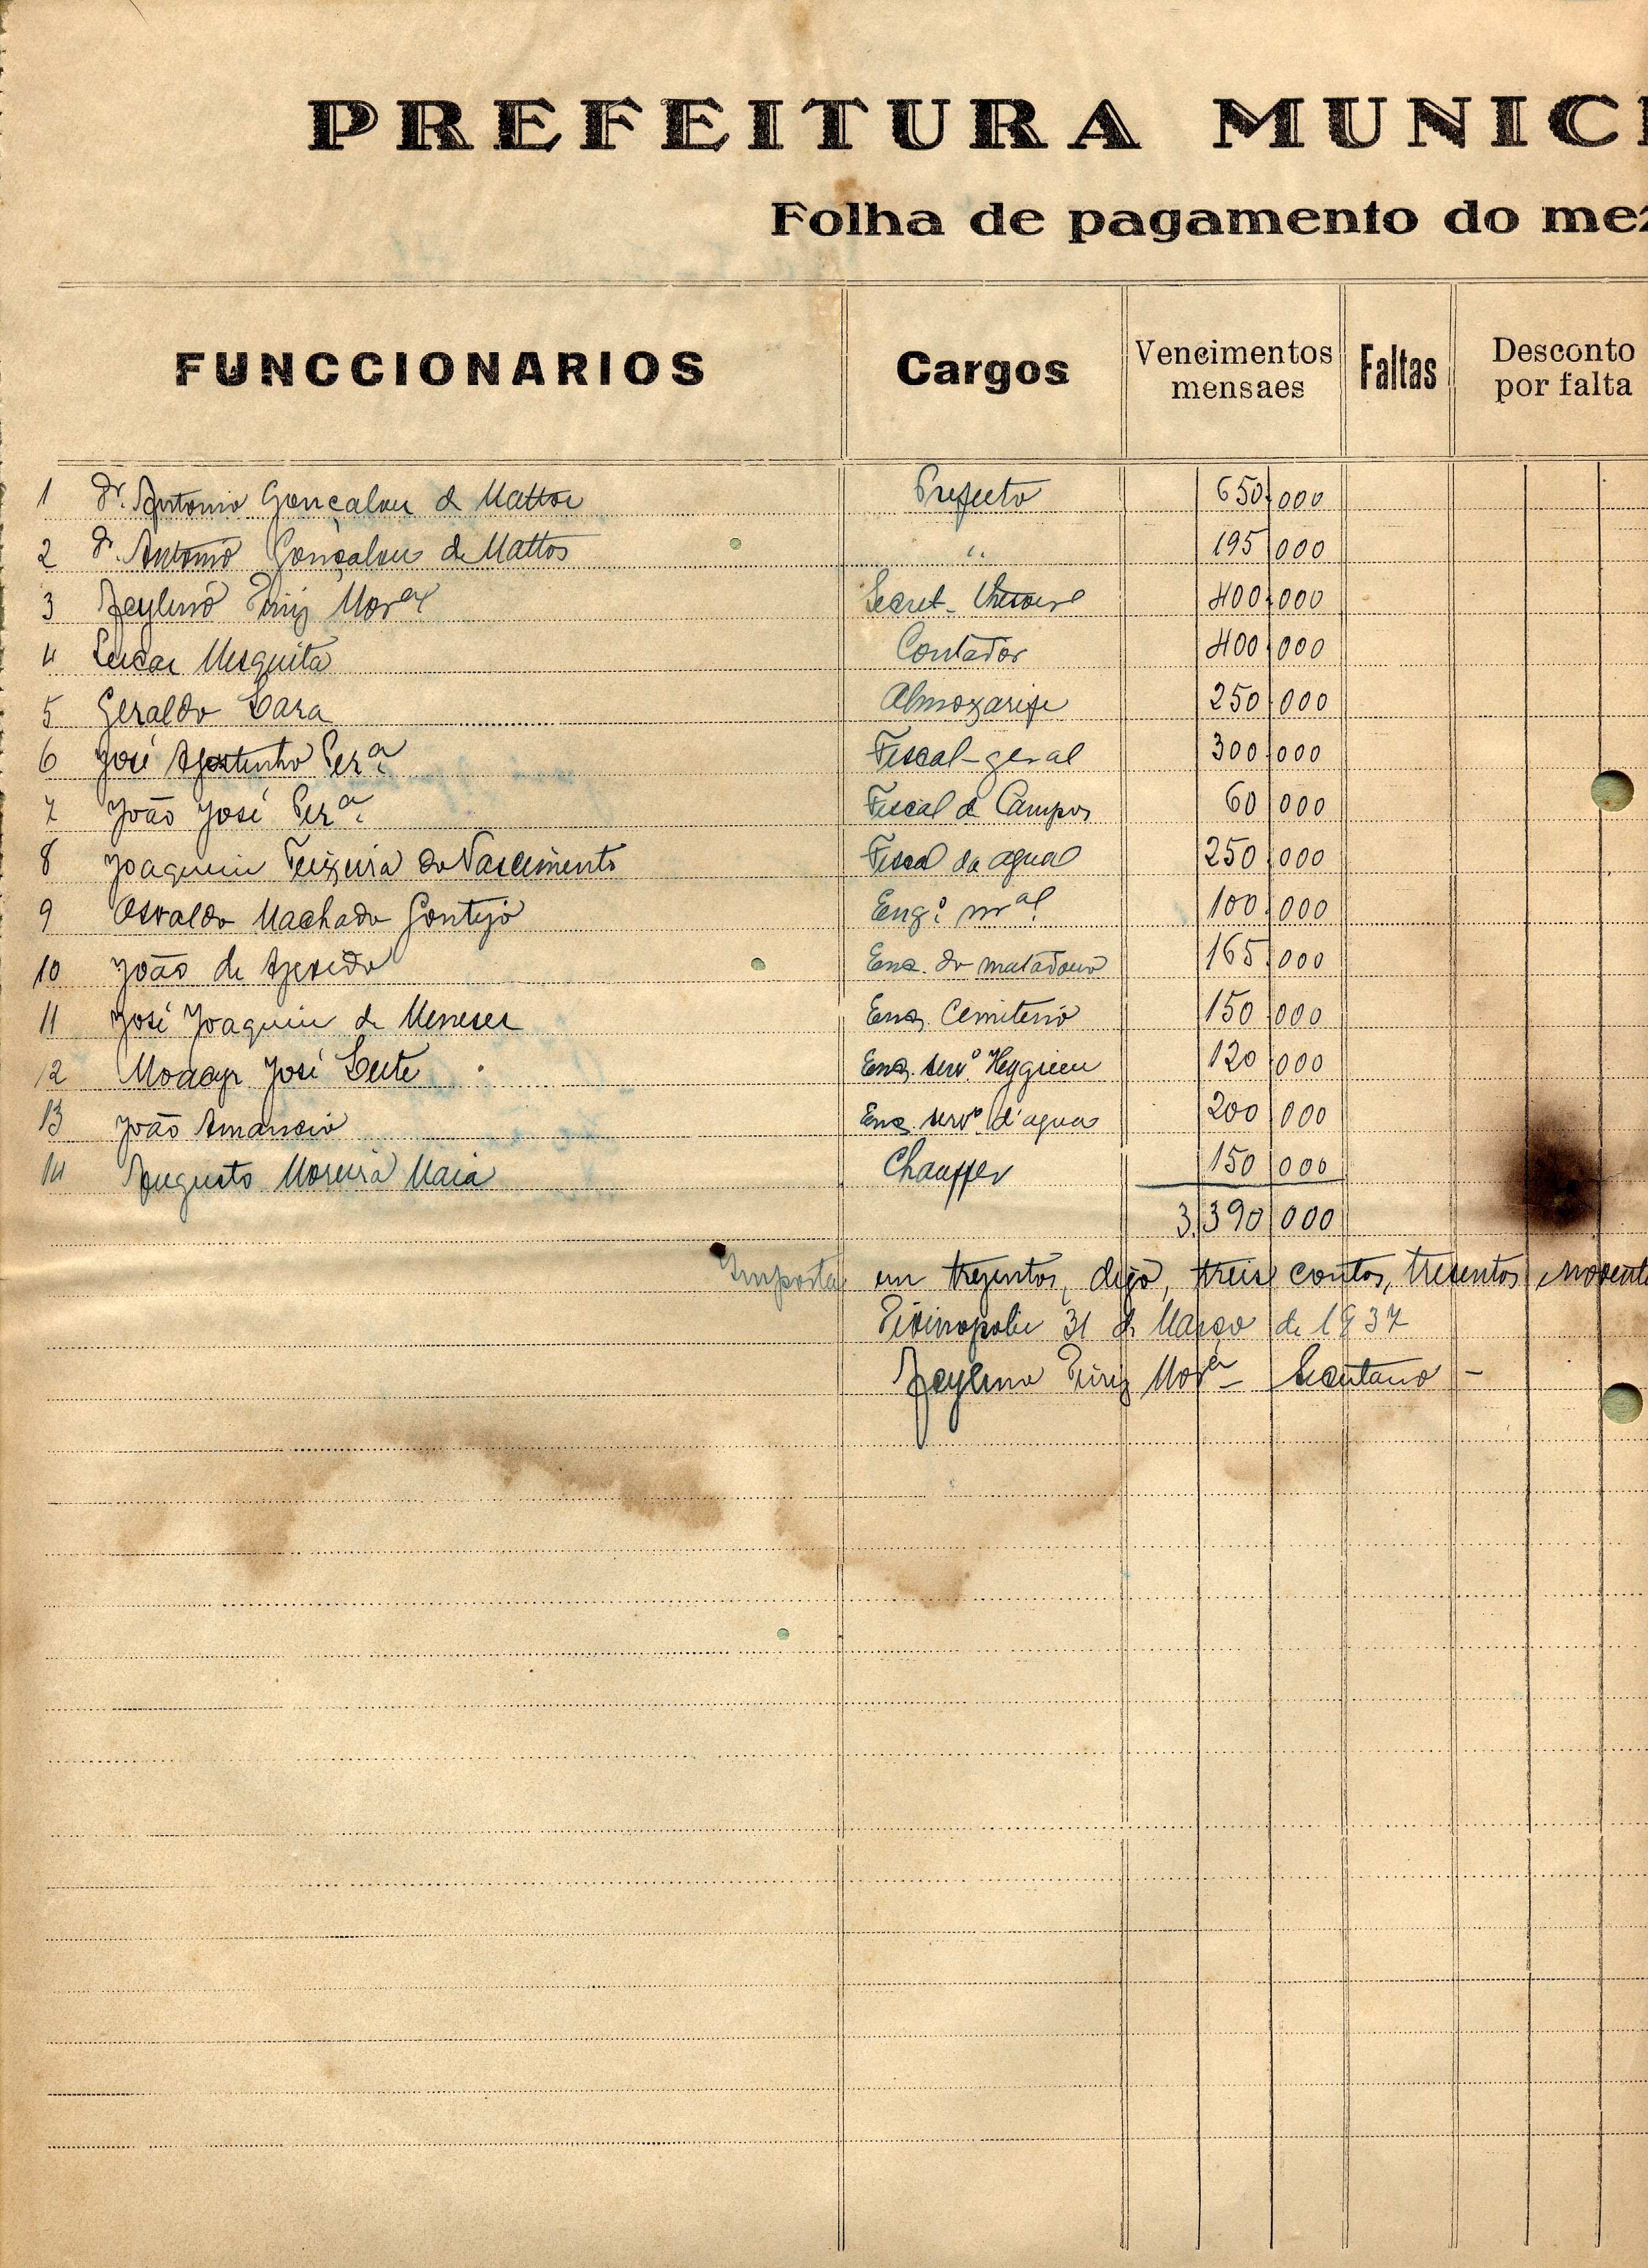 PREFEITURA MUNICI
Folha de pagamento do mez
FUNCCIONARIOS Cargos Vencimentos mensaes Faltas Desconto por falta
1 Dr. Antonio Gonçalves de Mattos Prefeito 650.000
2 Dr. Antonio Gonçalves de Mattos " 195 000
3 400.000
4 Mesquita Contador 400.000
5 Geraldo Lara Almoxarife 250.000
6 José Agostinho Per.ª Fiscal-geral 300.000
7 João José Per.ª Fiscal de Campos 60 000
8 Joaquim Teixeira do Nascimento Fiscal da agua 250.000
9 Osvaldo Machado Gontijo Eng.º 100.000
10 João de Azevedo Enc. do matadouro 165.000
11 José Joaquim de Meneses Enc. Cemiterio 150.000
12 Moacyr José Leite Enc. serv.º 120.000
13 João Amancio Enc. serv.º d'agua 200 000
14 Augusto Moreira Maia Chauffer 150 000
3.390 000
Importa em trezentos, digo, treis contos, tresentos e novent
Divinopolis 31 de Março de 1937